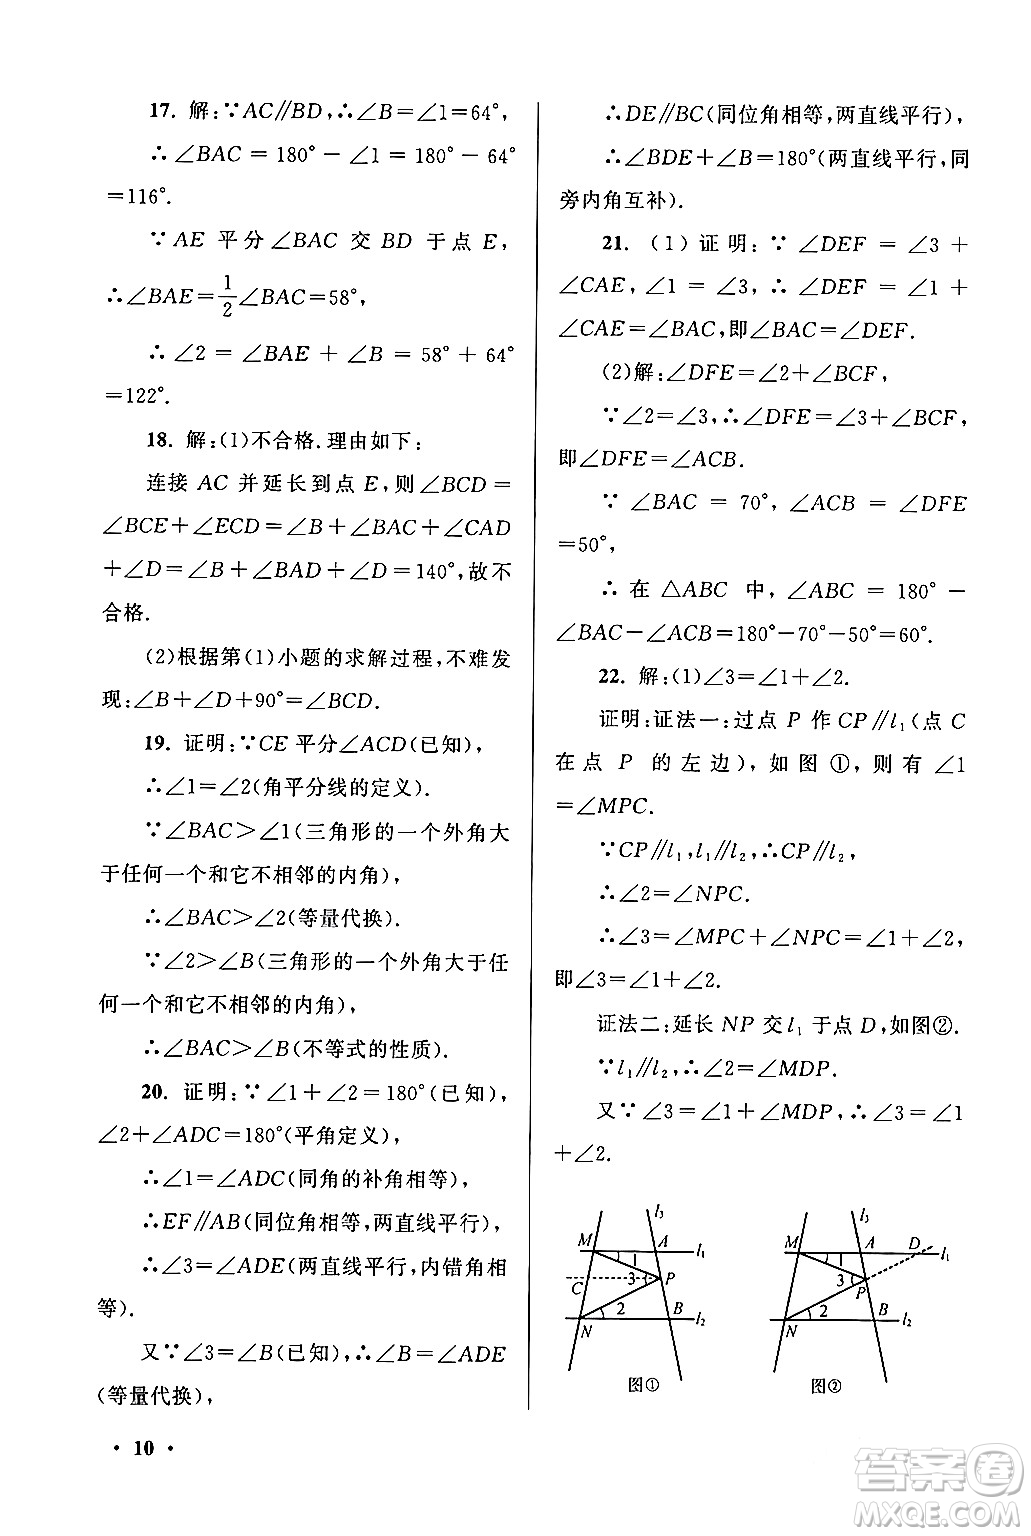 17. 解:∵AC∥BD,∴∠B=∠1=64°,
∴∠BAC = 180° − ∠1 = 180° − 64°
=116°.
∵ AE 平分∠BAC 交 BD 于点 E,
∴∠BAE=1/2∠BAC=58°,
∴∠2 = ∠BAE + ∠B = 58° + 64°
=122°.
18. 解:(1)不合格.理由如下:
连接 AC 并延长到点 E,则∠BCD=
∠BCE+∠ECD=∠B+∠BAC+∠CAD
+∠D=∠B+∠BAD+∠D=140°,故不
合格.
(2)根据第(1)小题的求解过程,不难发
现:∠B+∠D+90°=∠BCD.
19. 证明:∵CE 平分∠ACD(已知),
∴∠1=∠2(角平分线的定义).
∵∠BAC>∠1(三角形的一个外角大
于任何一个和它不相邻的内角),
∴∠BAC>∠2(等量代换).
∵∠2>∠B(三角形的一个外角大于任
何一个和它不相邻的内角),
∴∠BAC>∠B(不等式的性质).
20. 证明:∵∠1+∠2=180°(已知),
∠2+∠ADC=180°(平角定义),
∴∠1=∠ADC(同角的补角相等),
∴EF∥AB(同位角相等,两直线平行),
∴∠3=∠ADE(两直线平行,内错角相
等).
又∵∠3=∠B(已知),∴∠B=∠ADE
(等量代换),
· 10 ·
∴DE∥BC(同位角相等,两直线平行),
∴∠BDE+∠B=180°(两直线平行,同
旁内角互补).
21. (1)证明:∵∠DEF = ∠3 +
∠CAE,∠1 = ∠3,∴∠DEF = ∠1 +
∠CAE=∠BAC,即∠BAC=∠DEF.
(2)解:∠DFE=∠2+∠BCF,
∵∠2=∠3,∴∠DFE=∠3+∠BCF,
即∠DFE=∠ACB.
∵ ∠BAC = 70°,∠ACB = ∠DFE
=50°,
∴ 在 △ABC 中,∠ABC = 180° −
∠BAC−∠ACB=180°−70°−50°=60°.
22. 解:(1)∠3=∠1+∠2.
证明:证法一:过点 P 作 CP∥l₁(点 C
在点 P 的左边),如图①,则有∠1
=∠MPC.
∵CP∥l₁,l₁∥l₂,∴CP∥l₂,
∴∠2=∠NPC.
∴∠3=∠MPC+∠NPC=∠1+∠2,
即∠3=∠1+∠2.
证法二:延长 NP 交 l₁ 于点 D,如图②.
∵l₁∥l₂,∴∠2=∠MDP.
又∵∠3=∠1+∠MDP,∴∠3=∠1
+∠2.
l₃
M A l₁
1
C 3 P
2 B l₂
N
图①
l₃
M A D l₁
1
3 P
2 B l₂
N
图②
答案圈
MXQE.COM